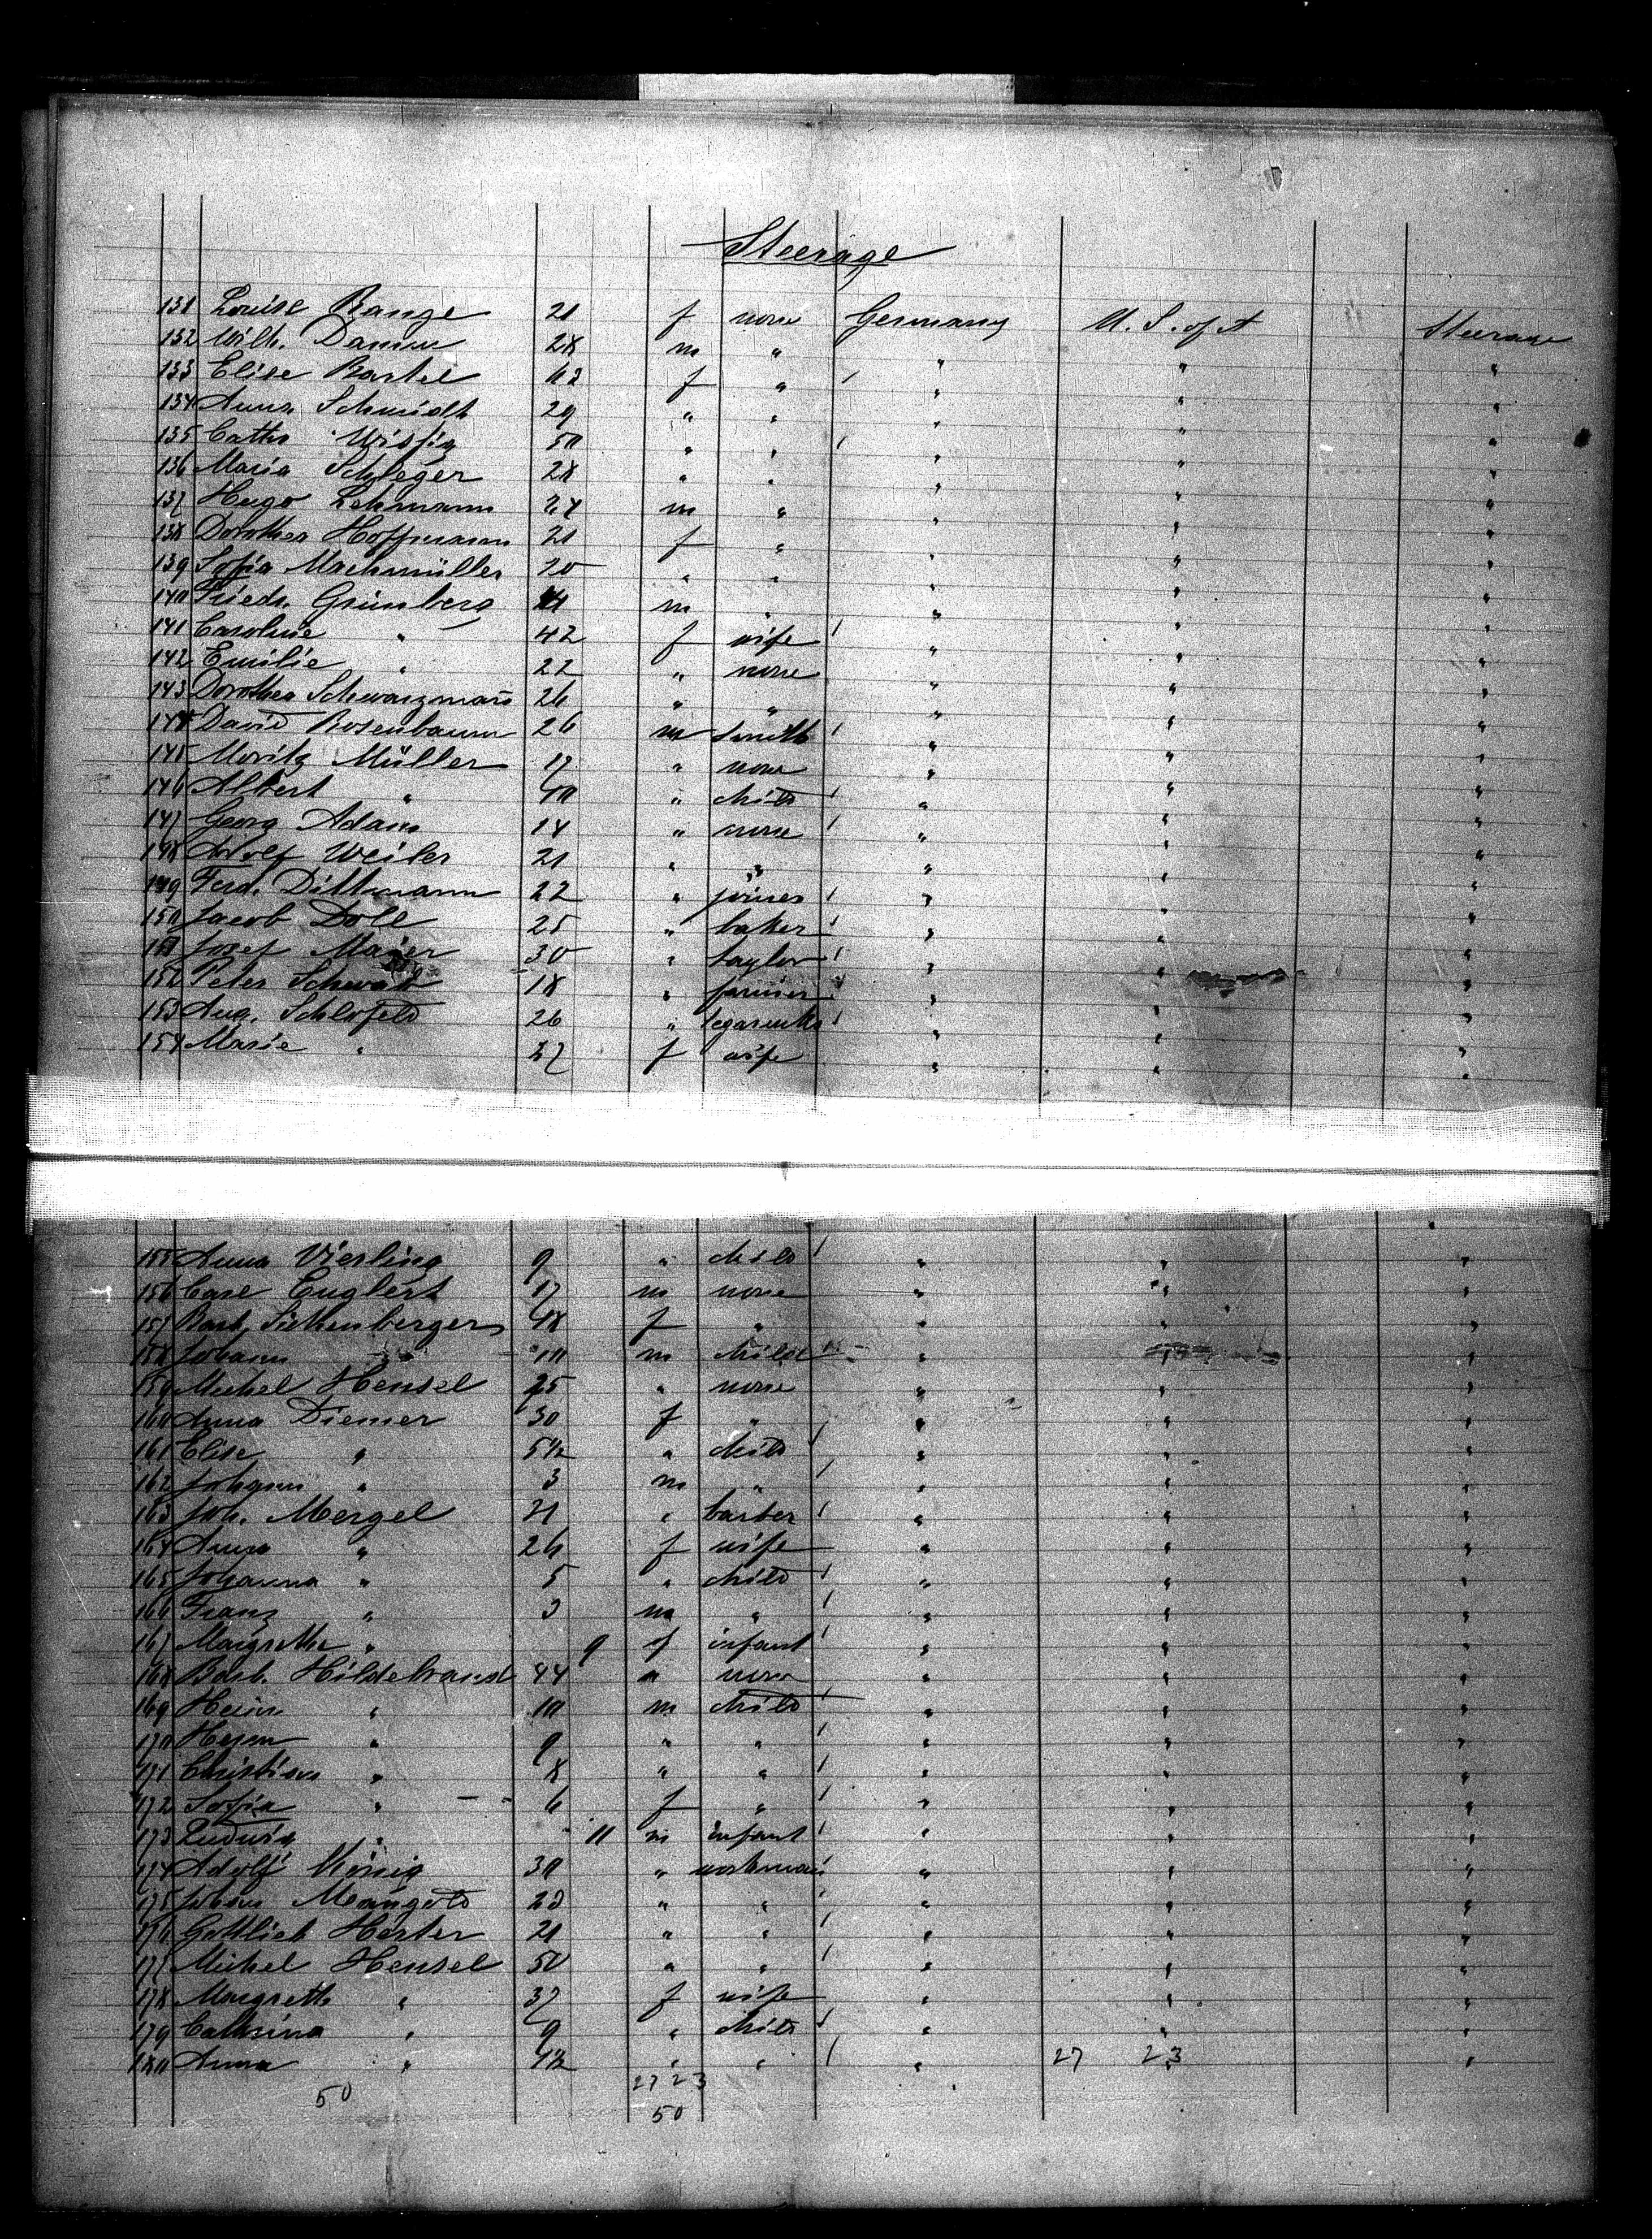 Steerage
131 Louise Range 21 f none Germany U. S. of A Steerage
132 Wilh. Damm 28 m " " " "
133 Elise Bartel f " " " "
134 Anna Schmidt 29 " " " " "
135 Cathr 50 " " " " "
136 Maria Schleger 28 " " " " "
137 Hugo Lehmann 24 m " " " "
138 Dorothea Hoffmann 21 f " " " "
139 Sofia Machmüller 20 " " " " "
140 Friedr. Grünberg m " " " "
141 Caroline " 42 f wife " " "
142 Emilie " 22 " none " " "
143 Dorothea Schwarzmann 26 " " " " "
144 David Rosenbaum 26 m smith " " "
145 Moritz Müller 17 " none " " "
146 Albert " " child " " "
147 Georg Adam 14 " none " " "
148 Adolf Weiler 21 " " " " "
149 Ferd. Dittmann 22 " joiner " " "
150 Jacob Doll 25 " baker " " "
151 Josef Maier 30 " taylor " " "
152 Peter Schwab 18 " farmer " " "
153 Aug. Schlofeld 26 " " " "
154 Marie " 27 f wife " " "
155 Anna Vierling 9 " child " " "
156 Carl Englert 17 m none " " "
157 Barb. Sichenberger 48 f " " " "
158 Johann 10 m child " " "
159 Michel Hensel 25 " none " " "
160 Anna Diemer 30 f " " " "
161 Elise " 5½ " child " " "
162 Johann " 3 m " " " "
163 Joh. Mergel 31 " barber " " "
164 Anna " 26 f wife " " "
165 Johanna " 5 " child " " "
166 Franz " 3 m " " " "
167 Margrethe " 9 f infant " " "
168 Barb. Hildebrand 44 " none " " "
169 Heinr " 10 m child " " "
170 " 9 " " " " "
171 Christian " 8 " " " " "
172 Sofia " 6 f " " " "
173 Ludwig " 11 m infant " " "
174 Adolf König 30 " workman " " "
175 Johann Mangold 23 " " " " "
176 Gottlieb Herter 21 " " " " "
177 Michel Hensel 50 " " " " "
178 Margreth " 37 f wife " " "
179 Cathrina " 9 " child " " "
180 Anna " " " " 27 23 "
50 27 23
50